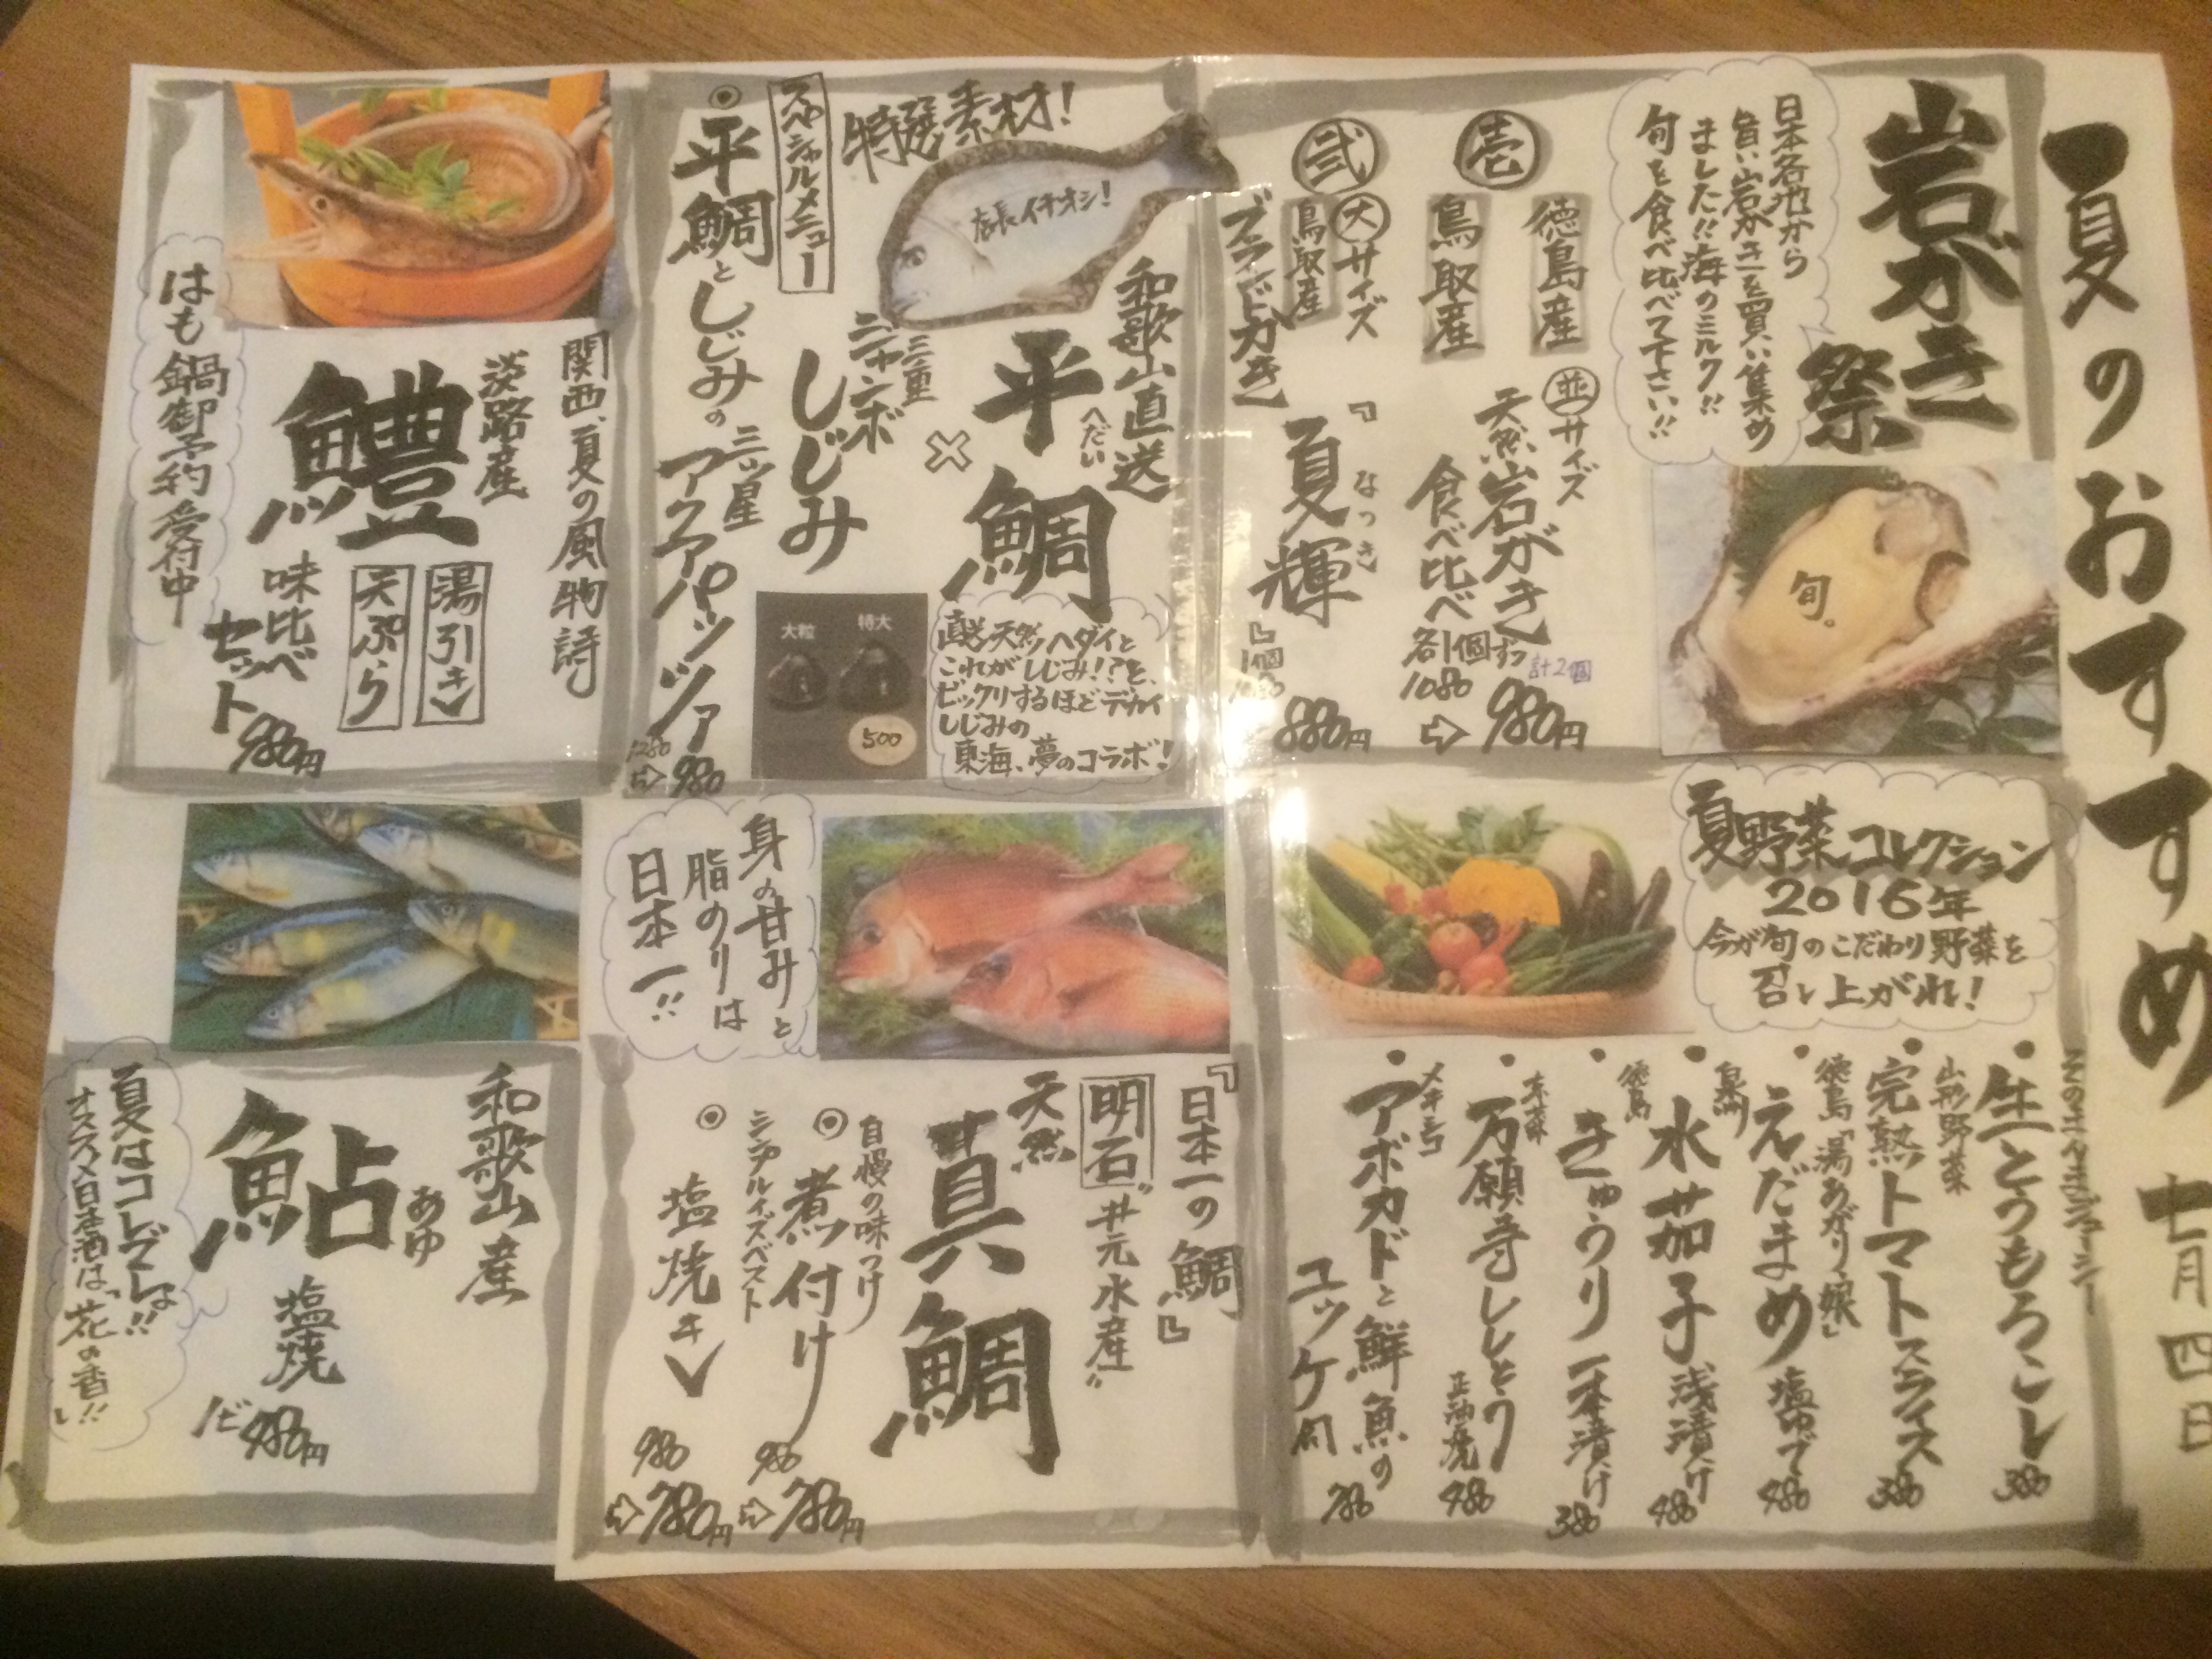 夏のおすすめ
七月四日
岩がき
祭
日本各地から
旨い岩がきを買い集め
ました!!海のミルク!!
旬を食べ比べて下さい!!
旬。
壱
徳島産
鳥取産
並サイズ
天然岩がき
食べ比べ
各1個ずつ
計2個
1080
⇨980円
弐
大サイズ
鳥取産
ブランドかき
『夏輝』
なつき
1個
880円
特選素材!
店長イチオシ!
和歌山直送
平鯛
へだい
×
三重
ジャンボ
しじみ
大粒
特大
500
直送天然ヘダイと
これがしじみ!?と、
ビックリするほどデカイ
しじみの
東海、夢のコラボ!
スペシャルメニュー
◉平鯛としじみの
三ツ星
アクアパッツァ
1280
⇨980
関西、夏の風物詩
淡路産
鱧
湯引き
天ぷら
味比べ
セット
980円
はも鍋御予約受付中
夏野菜コレクション
2016年
今が旬のこだわり野菜を
召し上がれ!
そのまんまジューシー
・生とうもろこし
380
山形野菜
・完熟トマトスライス
380
徳島「湯あがり娘」
・えだまめ塩ゆで
480
泉州
・水茄子浅漬け
480
徳島
・きゅうり一本漬け
380
京菜
・万願寺ししとう
正油焼
480
メキシコ
・アボカドと鮮魚の
ユッケ
780
身の甘みと
脂のりは
日本一!!
『日本一の鯛』
明石
"井元水産"
天然
真鯛
自慢の味つけ
◉煮付け
980
⇨780円
シンプルイズベスト
◉塩焼き
980
⇨780円
和歌山産
鮎
あゆ
塩焼
480円
夏はコレでしょ!!
オススメ日本酒は「花の香」!!